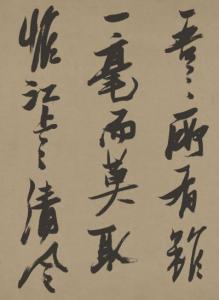 吾之所有雖
一毫而莫取
惟江上之清風